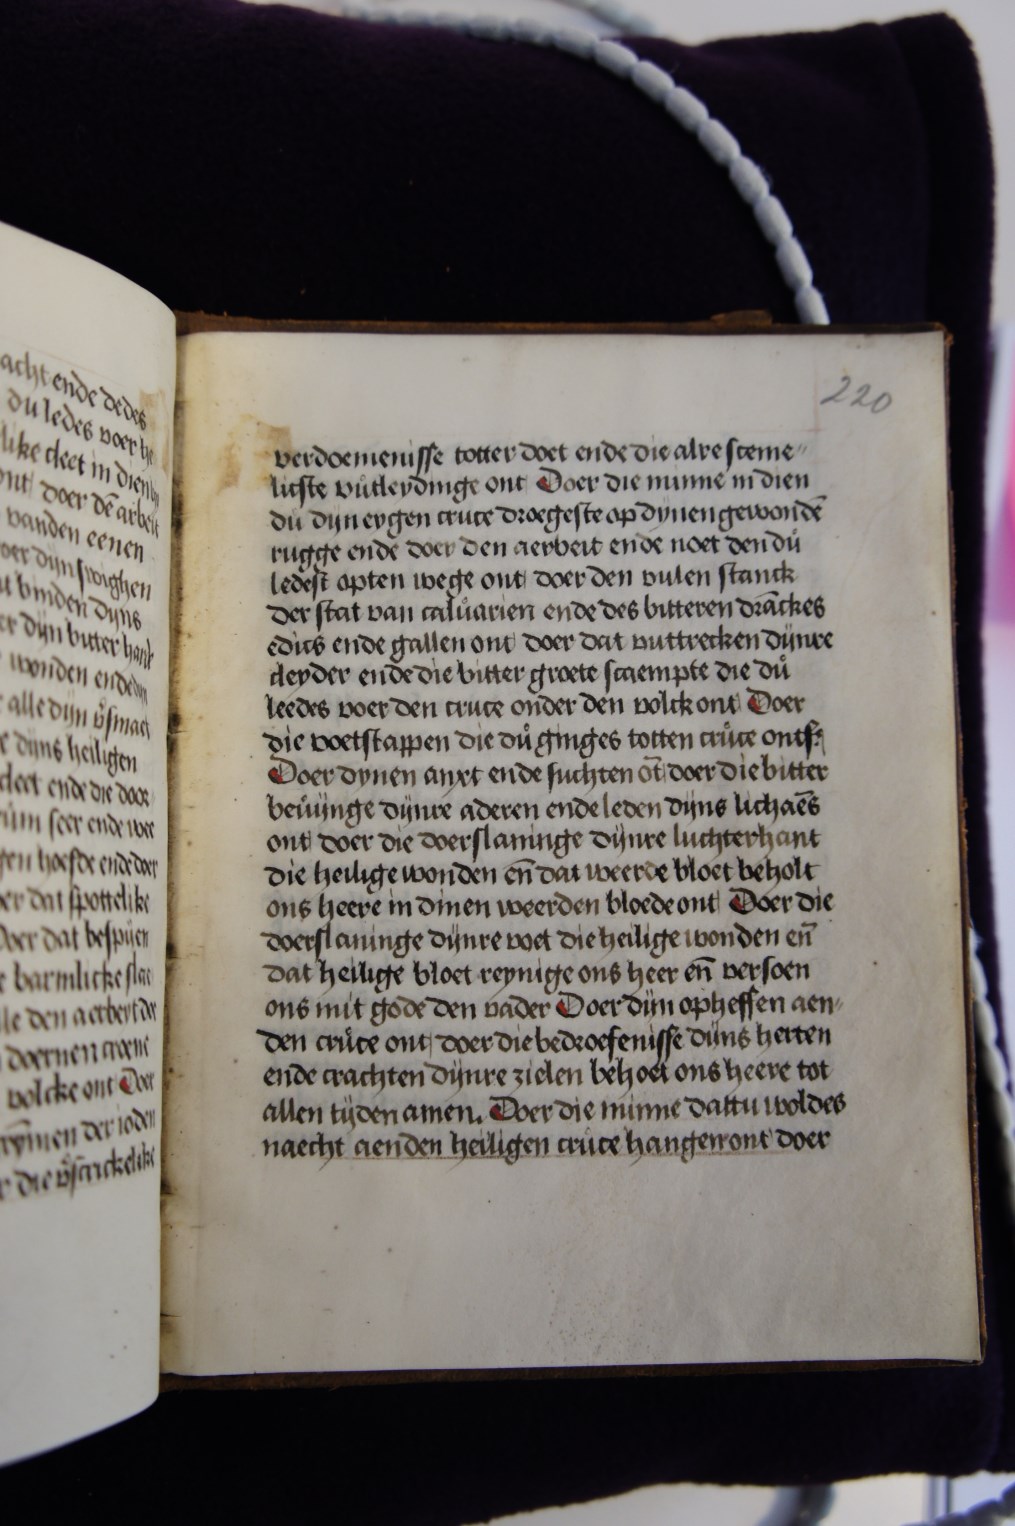 acht ende dedes
du ledes voer he
like cleet in dien
ont doer dē arbeit
vanden eenen
oer dijn swighen
binden dyns
dijn bitter hank
wonden ende
alle dijn
dijns heiligen
cleet ende die door
seer ende wee
hoefde ende doer
dat spottelike
Doer dat bespuen
barmlicke slae
den aerbeyt der
doernen croene
volcke ont Doer
der ioden
die
220
verdoemenisse totter doet ende die alre sceme〃
licste vůtleydinge ont Doer die minne in dien
du dyn eygen cruce droegeste op dynen gewondē
rugge ende doer den aerbeit ende noet den dů
ledest opten wege ont doer den vulen stanck
der stat van calůarien ende des bitteren drāckes
edics ende gallen ont doer dat vuttrecken dijnre
cleyder ende die bitter groete scaempte die dů
leedes voer den cruce onder den volck ont Doer
die voetstappen die dů ginges totten crůce ontf
Doer dynen anxt ende suchten ōt doer die bitter
beůijnge dijnre aderen ende leden dijns lichaēs
ont doer die doerslaninge dijnre luchterhant
die heilige wonden en̄ dat weerde bloet beholt
ons heere in dinen weerden bloede ont Doer die
doerslaninge dijnre voet die heilige wonden en̄
dat heilige bloet reynige ons heer en̄ versoen
ons mit gode den vader Doer dijn opheffen aen〃
den crůce ont doer die bedroefenisse dijns herten
ende crachten dijnre zielen behoet ons heere tot
allen tijden amen. Doer die minne dattu woldes
naecht aenden heiligen crůce hangen ont doer